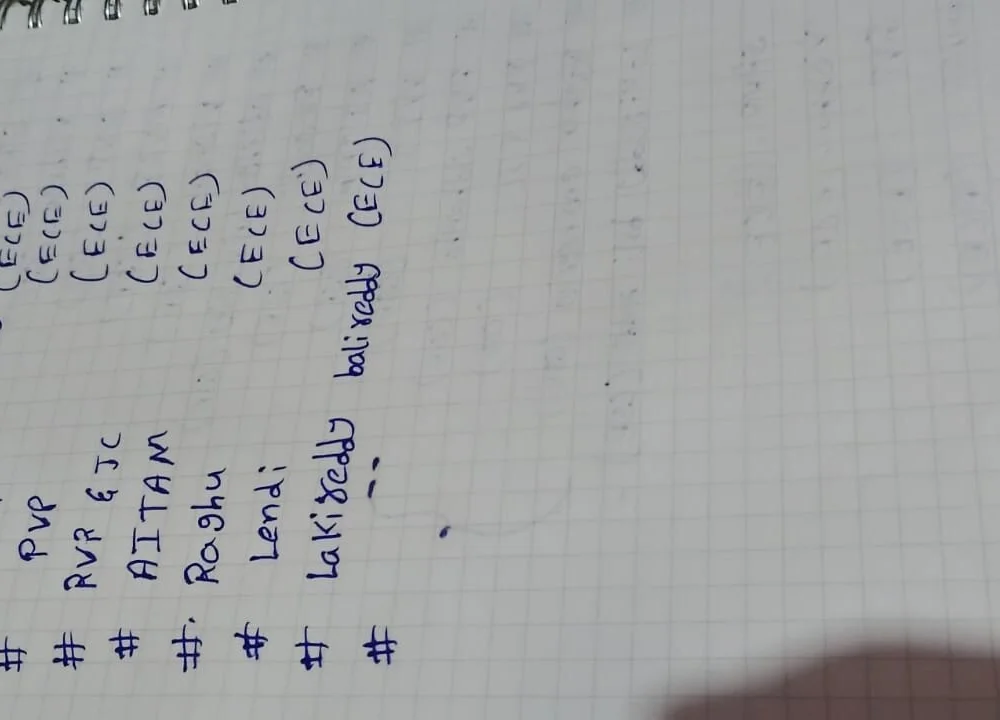 (ECE)
(ECE)
# PVP (ECE)
# RVR & JC (ECE)
# AITAM (ECE)
#. Raghu (ECE)
# Lendi (ECE)
# Lakireddy balireddy (ECE)
# --